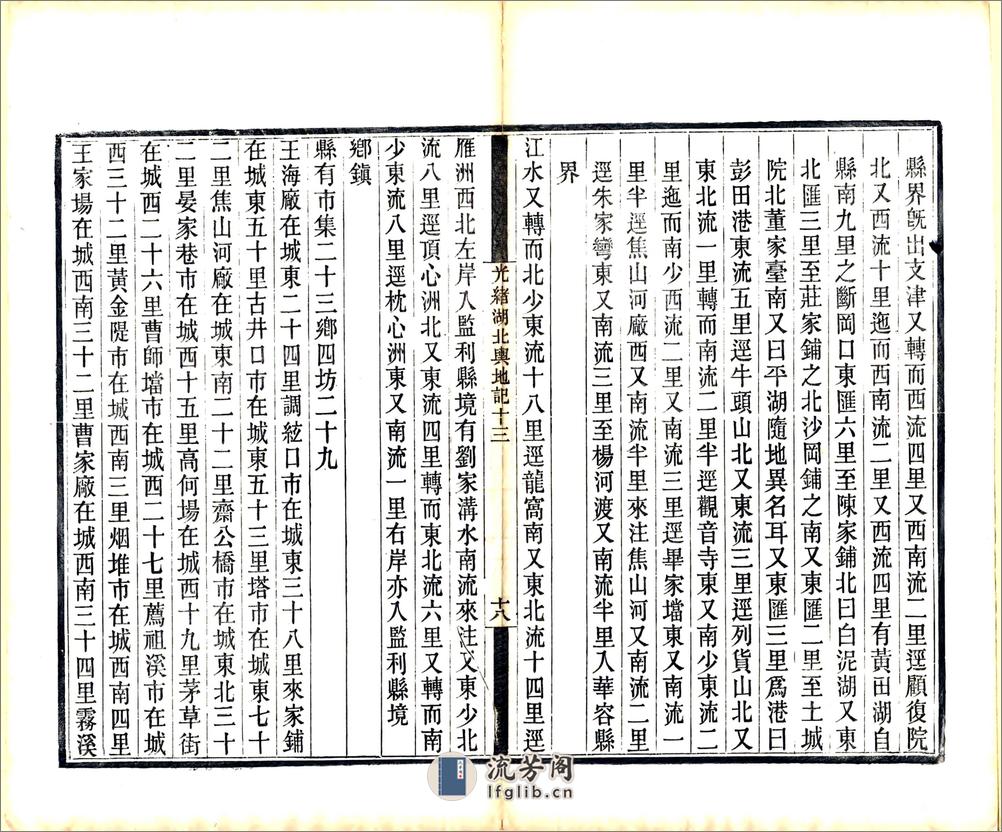 縣界旣出支津又轉而西流四里又西南流二里逕顧復院
北又西流十里迤而西南流二里又西流四里有黃田湖自
縣南九里之斷岡口東匯六里至陳家鋪北曰白泥湖又東
北匯三里至莊家鋪之北沙岡鋪之南又東匯二里至土城
院北董家臺南又曰平湖隨地異名耳又東匯三里爲港曰
彭田港東流五里逕牛頭山北又東流三里逕列貨山北又
東北流一里轉而南流二里半逕觀音寺東又南少東流二
里迤而南少西流二里又南流三里逕畢家壋東又南流一
里半逕焦山河廠西又南流半里來注焦山河又南流二里
逕朱家彎東又南流三里至楊河渡又南流半里入華容縣
界
江水又轉而北少東流十八里逕龍窩南又東北流十四里逕
光緒湖北輿地記十三
十八
雁洲西北左岸入監利縣境有劉家溝水南流來注又東少北
流八里逕頂心洲北又東流四里轉而東北流六里又轉而南
少東流八里逕枕心洲東又南流一里右岸亦入監利縣境
鄕鎮
縣有市集二十三鄕四坊二十九
王海廠在城東二十四里調絃口市在城東三十八里來家鋪
在城東五十里古井口市在城東五十三里塔市在城東七十
二里焦山河廠在城東南二十二里齋公橋市在城東北三十
二里晏家巷市在城西十五里高何場在城西十九里茅草街
在城西二十六里曹師壋市在城西二十七里薦祖溪市在城
西三十二里黃金隄市在城西南三里烟堆市在城西南四里
王家場在城西南三十二里曹家廠在城西南三十四里霧溪
流芳阁
lfglib.cn